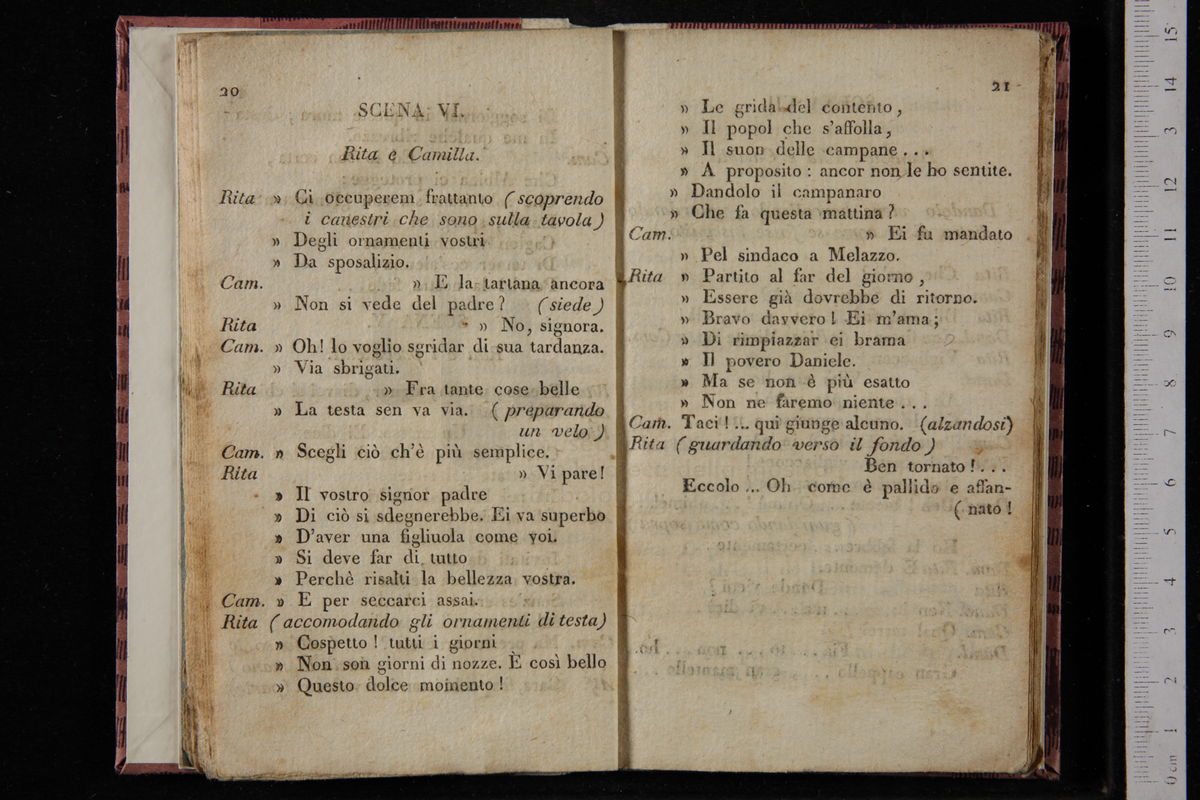 20
SCENA VI.
Rita e Camilla.
Rita » Ci occuperem frattanto (scoprendo
i canestri che sono sulla tavola)
» Degli ornamenti vostri
» Da sposalizio.
Cam. » E la tartana ancora
» Non si vede del padre? (siede)
Rita » No, signora.
Cam. » Oh! Io voglio sgridar di sua tardanza.
» Via sbrigati.
Rita » Fra tante cose belle
» La testa sen va via. (preparando
un velo)
Cam. » Scegli ciò ch'è più semplice.
Rita » Vi pare!
» Il vostro signor padre
» Di ciò si sdegnerebbe. Ei va superbo
» D'aver una figliuola come voi.
» Si deve far di tutto
» Perchè risalti la bellezza vostra.
Cam. » E per seccarci assai.
Rita (accomodando gli ornamenti di testa)
» Cospetto! tutti i giorni
» Non son giorni di nozze. È così bello
» Questo dolce momento!
21
» Le grida del contento,
» Il popol che s'affolla,
» Il suon delle campane...
» A proposito: ancor non le ho sentite.
» Dandolo il campanaro
» Che fa questa mattina?
Cam. » Ei fu mandato
» Pel sindaco a Melazzo.
Rita » Partito al far del giorno,
» Essere già dovrebbe di ritorno.
» Bravo davvero! Ei m'ama;
» Di rimpiazzar ei brama
» Il povero Daniele.
» Ma se non è più esatto
» Non ne faremo niente...
Cam. Taci!... qui giunge alcuno. (alzandosi)
Rita (guardando verso il fondo)
Ben tornato!...
Eccolo... Oh come è pallido e affan-
(nato!
0 cm 1 2 3 4 5 6 7 8 9 10 11 12 3 14 15